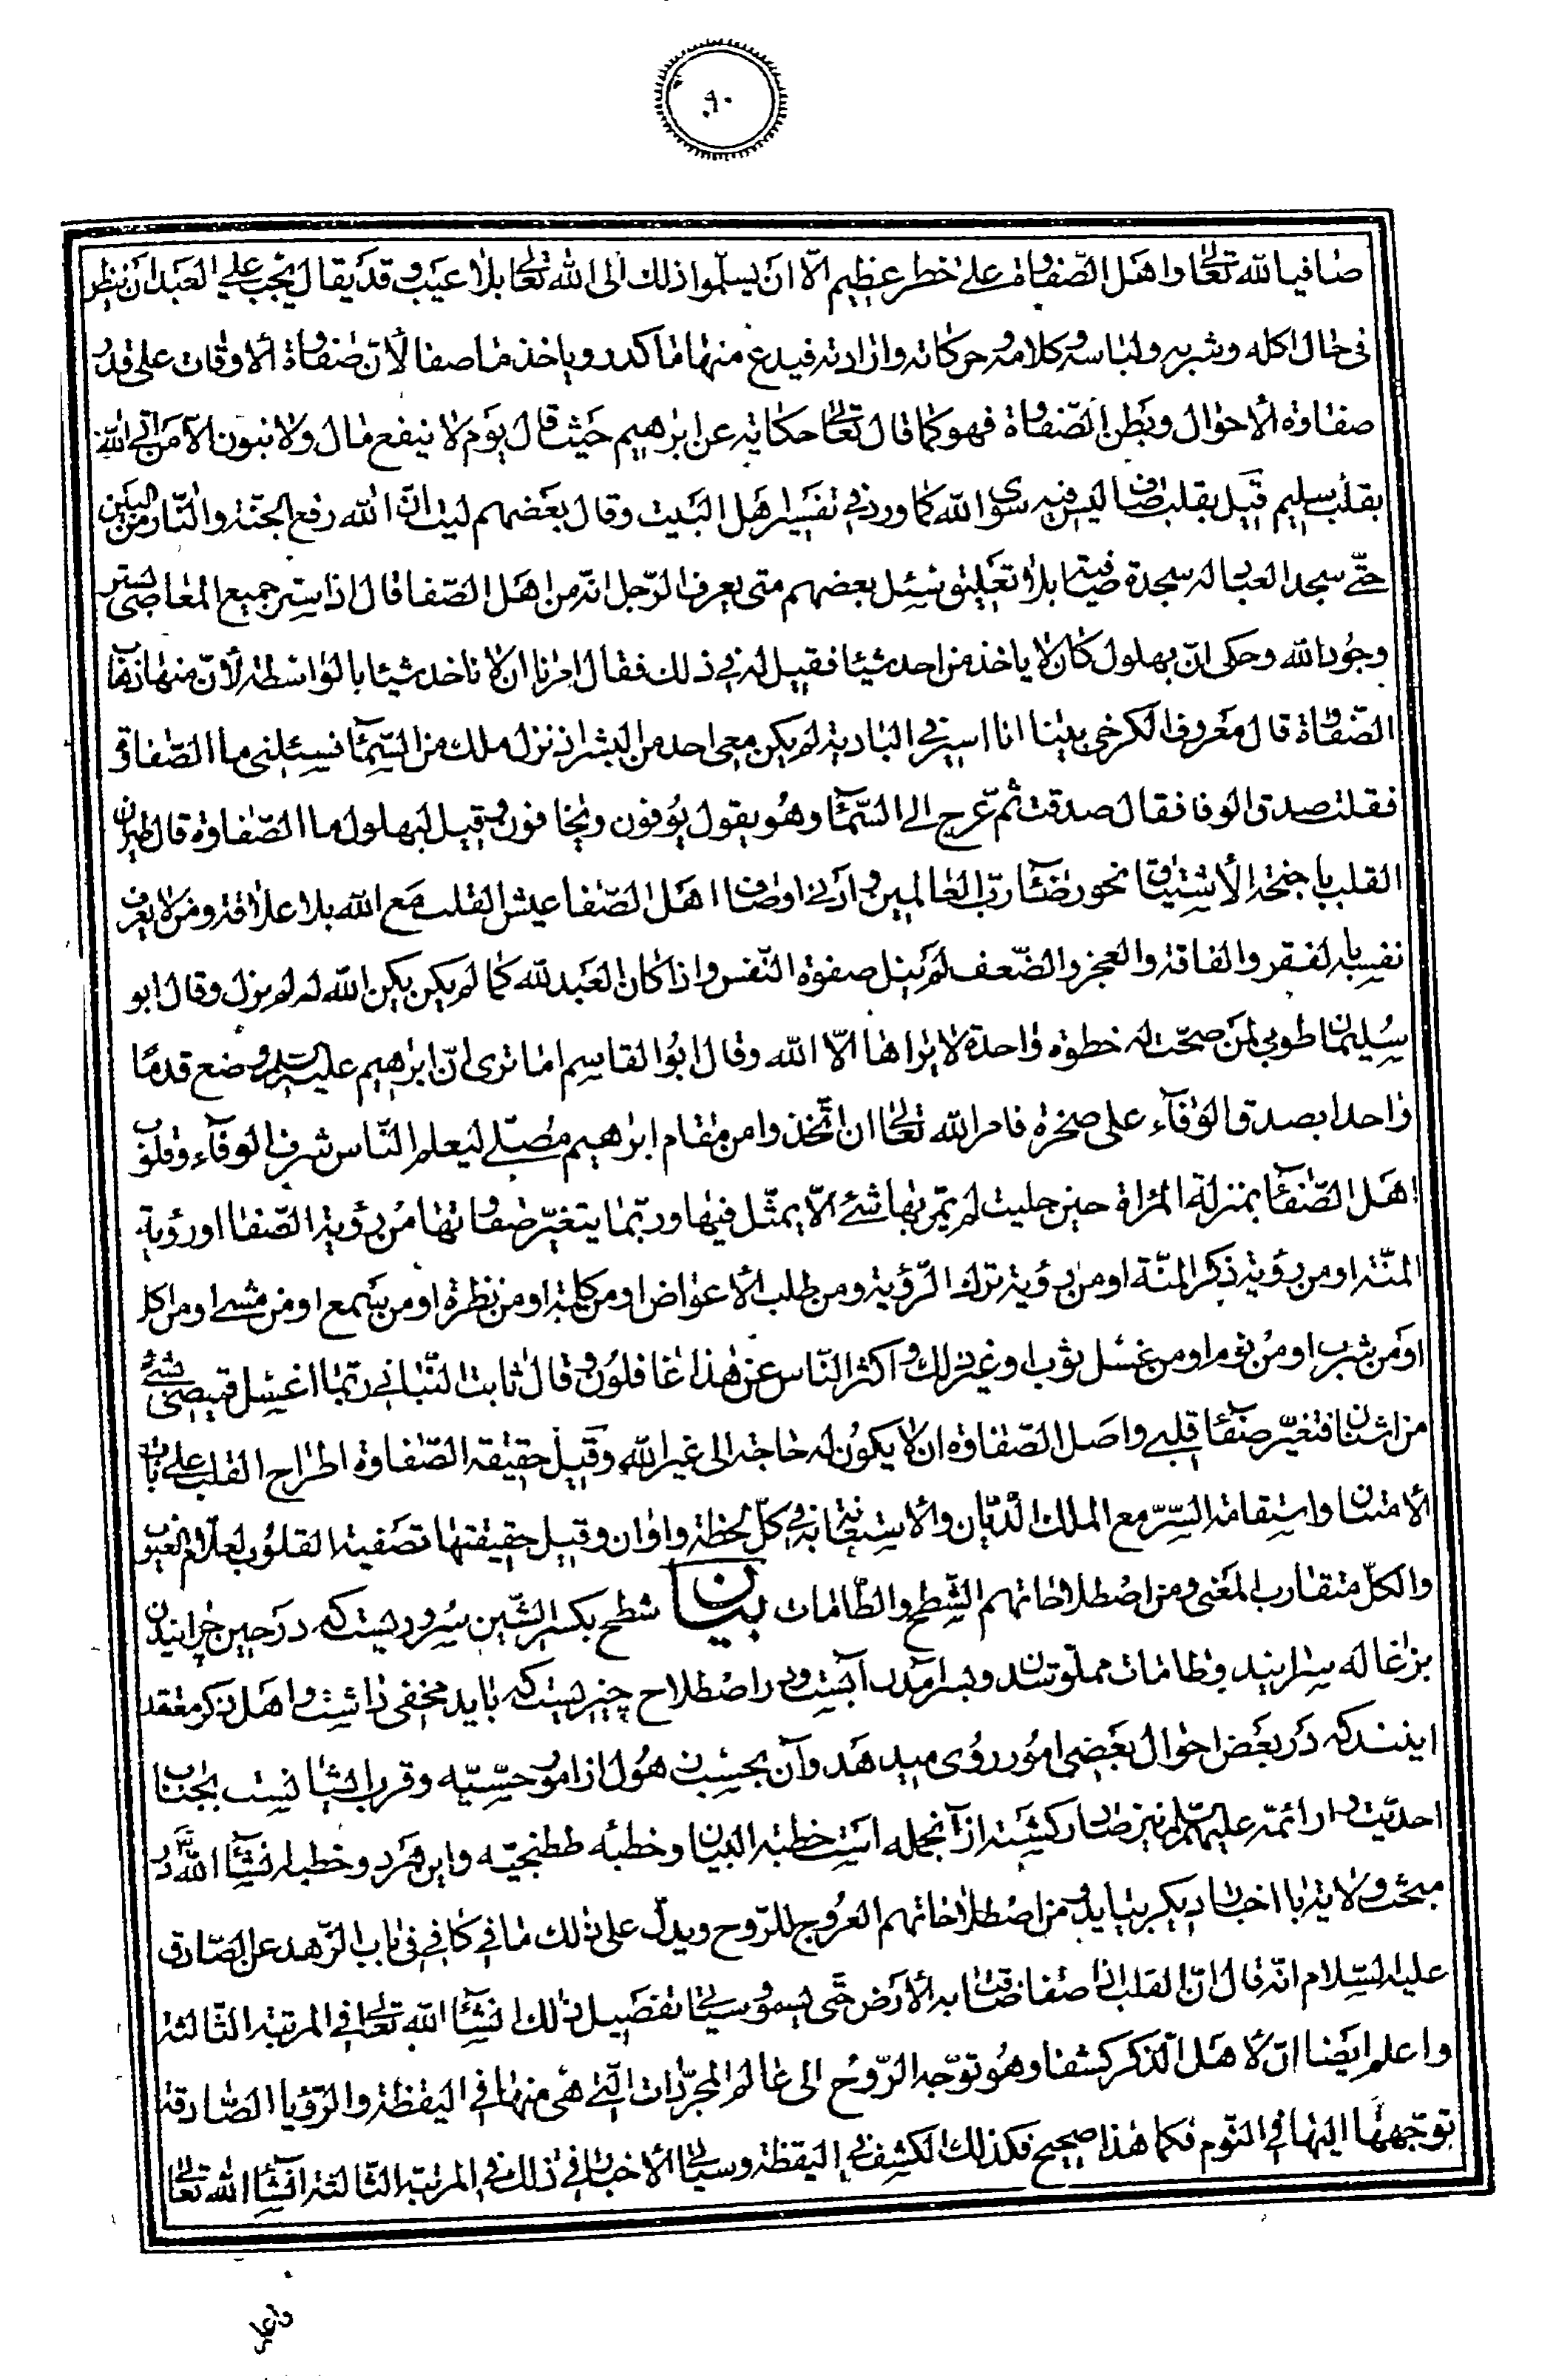 ٩٠
صافيا لله تعالى واهل الصّفاوة على خطر عظيم الّا ان يسلّموا ذلك الى الله تعالى بلا عيب وقد يقال يجب على العبد ان ينظر
فى حال اكله وشربه ولباسه وكلامه وحركاته وارادته فيدع منها ما كدر وياخذ ما صفا لأنّ صفاوة ألاوقات على قدر
صفاوة ألاحوال وبطن الصّفاوة فهو كما قال تعالى حكاية عن ابرهيم حيث قال يوم لا ينفع مال ولا بنون الّا من اتى الله
بقلب سليم قيل بقلب صاف ليس فيه سوى الله كما ورد فى تفسير اهل البيت وقال بعضهم ليت انّ الله رفع الجنّة والنّار من البين
حتّى سجد العباد له سجدة صافية بلا تعليق سئل بعضهم متى يعرف الرّجل انّه من اهل الصّفا قال اذا ستر جميع المعاصى لستر
وجود الله وحكى انّ بهلول كان لا ياخذ من احد شيئا فقيل له فى ذلك فقال امرنا ان لا ناخذ شيئا بالواسطة لأنّ منها ذهاب
الصّفاوة قال معروف الكرخى بينا انا اسير فى البادية لم يكن معى احد من البشر اذ نزل ملك من السّماء فسئلنى ما الصّفاوة
فقلت صدق الوفا فقال صدقت ثمّ عرج الى السّماء وهو يقول يوفون ويخافون وقيل لبهلول ما الصّفاوة قال طيران
القلب باجنحة الأشتياق نحو رضاء ربّ العالمين وادنى اوصاف اهل الصّفا عيش القلب مع الله بلا علاقة ومن لا يعرف
نفسه بالفقر والفاقة والعجز والضّعف لم ينل صفوة النّفس واذا كان العبد لله كما لم يكن يكن الله له لم يزل وقال ابو
سليمان طوبى لمن صحّت له خطوة واحدة لا يراها الّا الله وقال ابو القاسم اما ترى انّ ابرهيم عليه السلم وضع قدمًا
واحدا بصدق الوفاء على صخرة فامر الله تعالى ان اتّخذوا من مقام ابرهيم مصلّى ليعلم النّاس شرف الوفاء وقلوب
اهل الصّفاء بمنزلة المراة حين جليت لم يمّر بها شئ الّا يمثّل فيها وربّما يتغيّر صفاوتها من رؤية الصّفا او رؤية
المنّة او من رؤية ذكر المنّة او من رؤية ترك الرّؤية ومن طلب الأعواض او من كلمة او من نظرة او من سمع او من مشى او من اكل
او من شرب او من نوم او من غسل ثوب او غير ذلك واكثر النّاس عن هذا غافلون وقال ثابت البنانى ربّما اغسل قميصى شئ
من اشنان فتغيّر صفاء قلبى واصل الصّفاوة ان لا يكون له حاجة الى غير الله وقيل حقيقة الصّفاوة اطراح القلب على باب
ألامتنان واستقامة السّرّ مع الملك الدّيّان والأستعانة به فى كلّ لحظة واوان وقيل حقيقتها تصفية القلوب لعلّام الغيوب
والكلّ متقارب المعنى ومن اصطلاحاتهم الشّطح والطّامات بيان شطح بكسر الشّين سروديست كه در حين چرانيدن
بزغاله سرايند وطامات مملوّ شدن وبسر آمدن آبست ودر اصطلاح چيزيست كه بايد مخفى داشت واهل ذكر معتقد
اينند كه در بعض احوال بعضى امور روى ميدهد وآن بحسب هول از امور حسّيّه وقرب ايشانست بجناب
احديّت واز ائمّة عليهم السّلم نيز صادر كشته از آنجمله است خطبة البيان وخطبه ططنجيّه واين هر دو خطبه انشاء الله در
مبحث ولايت با اخبار ديكر بيايد ومن اصطلاحاتهم العروج للرّوح ويدلّ على ذلك ما فى كافى فى باب الزّهد عن الصّادق
عليه السّلام انّه قال انّ القلب اذا صفا ضاقت به ألارض حتّى يسمو وسياتى تفصيل ذلك انشاء الله تعالى فى المرتبة الثّالثة
واعلم ايضا انّ لأهل الّذكر كشفا وهو توجّه الرّوح الى عالم المجرّدات الّتى هى منها فى اليقظة والرّؤيا الصّادقة
توجّهها اليها فى النّوم فكما هذا صحيح فكذلك الكشف فى اليقظة وسياتى ألاخبار فى ذلك فى المرتبة الثّالثة انشاء الله تعالى